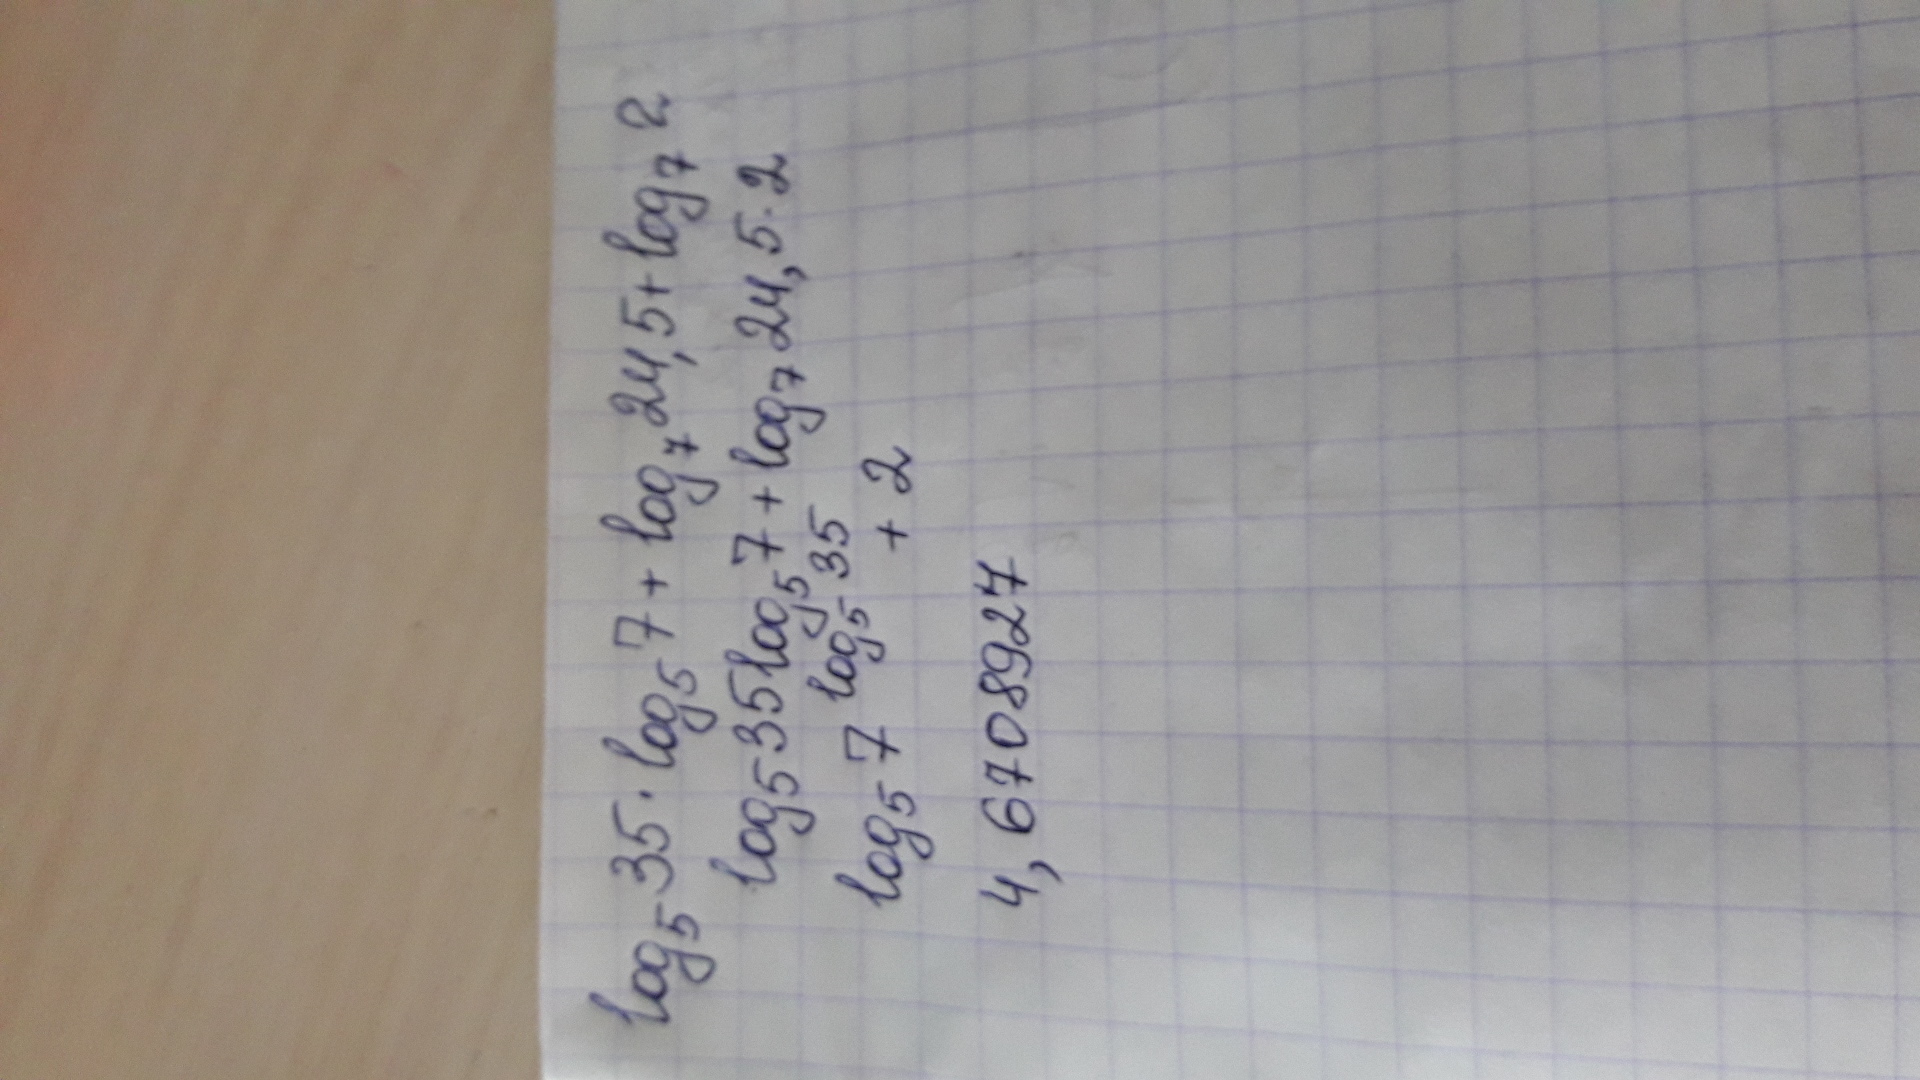 log₅35·log₅7+log₇24,5+log₇2
log₅35log₅7+log₇24,5·2
log₅7 log₅35 + 2
4,6708927